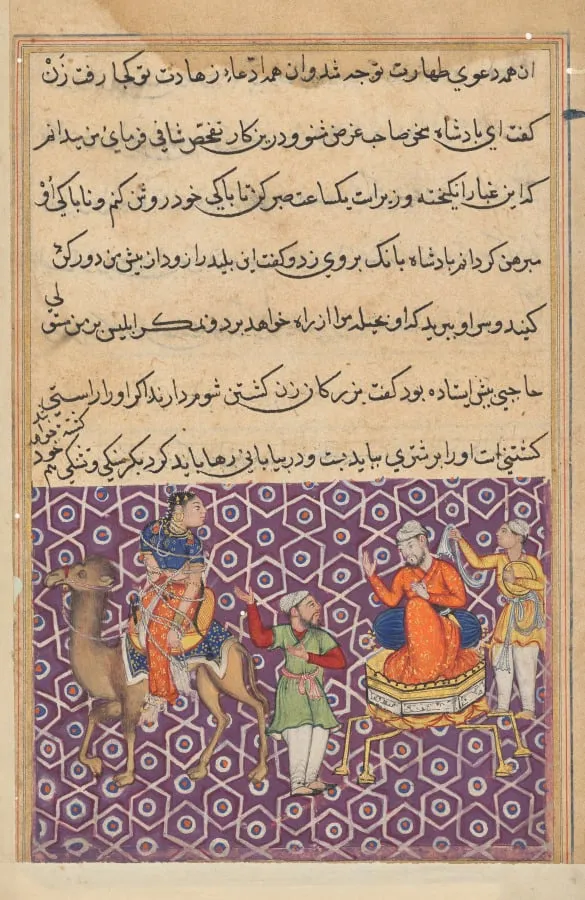 ان همه دعوي طهارت توجه شد و ان همه ادّعاء زهادت تو کجا رفت زن
کفت اي بادشاه سخن صاحب غرض مشنو و درین کار تفحّص شافي فرمائ من میدانم
که این غبار انکیخته وزیر است یکساعت صبر کن تا باکي خود روشن کنم و ناباکي او
مبرهن کردانم بادشاه بانک بر وي زد و کفت این بلید را زود از بیش من دور کن
کنید و سر او ببرید که او بحیله مرا از راه خواهد برد و بمکر ابلیس بر من
حاجبي بیش ایستاده بود کفت بزرکان زن کشتن شوم دارند اکر او را راستي
کشتني است او را بر شتري بباید بست و در بیاباني رها باید کرد دیکر